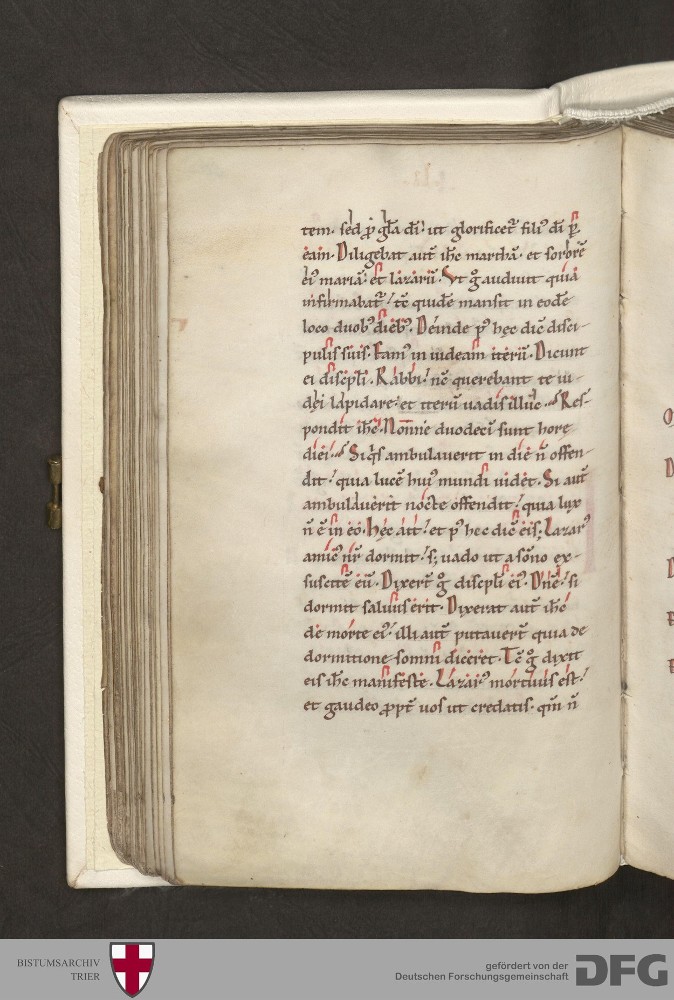 tem. sed ꝓ gła dī. ut glorificet̄ fili᾽ dī ꝑ
eam. Diligebat aut̄ ih̄c marthā. et sororē
ei᾽ mariā. et lazarū. Ut g̊ audiuit quia
infirmabat̄. tc̄ quidē mansit in eodē
loco duob᾽ dieb᾽. Deinde p᾽ hęc dic̄ disci-
pulis suis. Eam᾽ in iudeam iterū. Dicunt
ei discipli. Rabbi. nc̄ querebant te iu-
dęi lapidare. et iterū uadis illuc̄. Res-
pondit ih̄c. Nonne duodecī sunt hore
diei. Siq̄s ambulauerit in die n̄ offen-
dit. quia lucē hui᾽ mundi uidet. Si aut̄
ambulauerit nocte offendit. quia lux
n̄ ē in eo. Hęc ait. et p᾽ hec dic̄ eis; Lazar᾽
amic᾽ nr̄ dormit. s; uado ut a sōno ex-
suscitē eū. Dixer̄t g̊ discipli ei᾽. Dn̄e. si
dormit saluus erit. Dixerat aut̄ ih̄c
de morte ei᾽. illi aut̄ putauer̄t quia de
dormitione somni diceret. Tc̄ g̊ dixit
eis ih̄c manifeste. Lazar᾽ mortuus est.
et gaudeo ꝓpt̄ uos ut credatis. qm̄ n̄
BISTUMSARCHIV
TRIER
gefördert von der
Deutschen Forschungsgemeinschaft
DFG